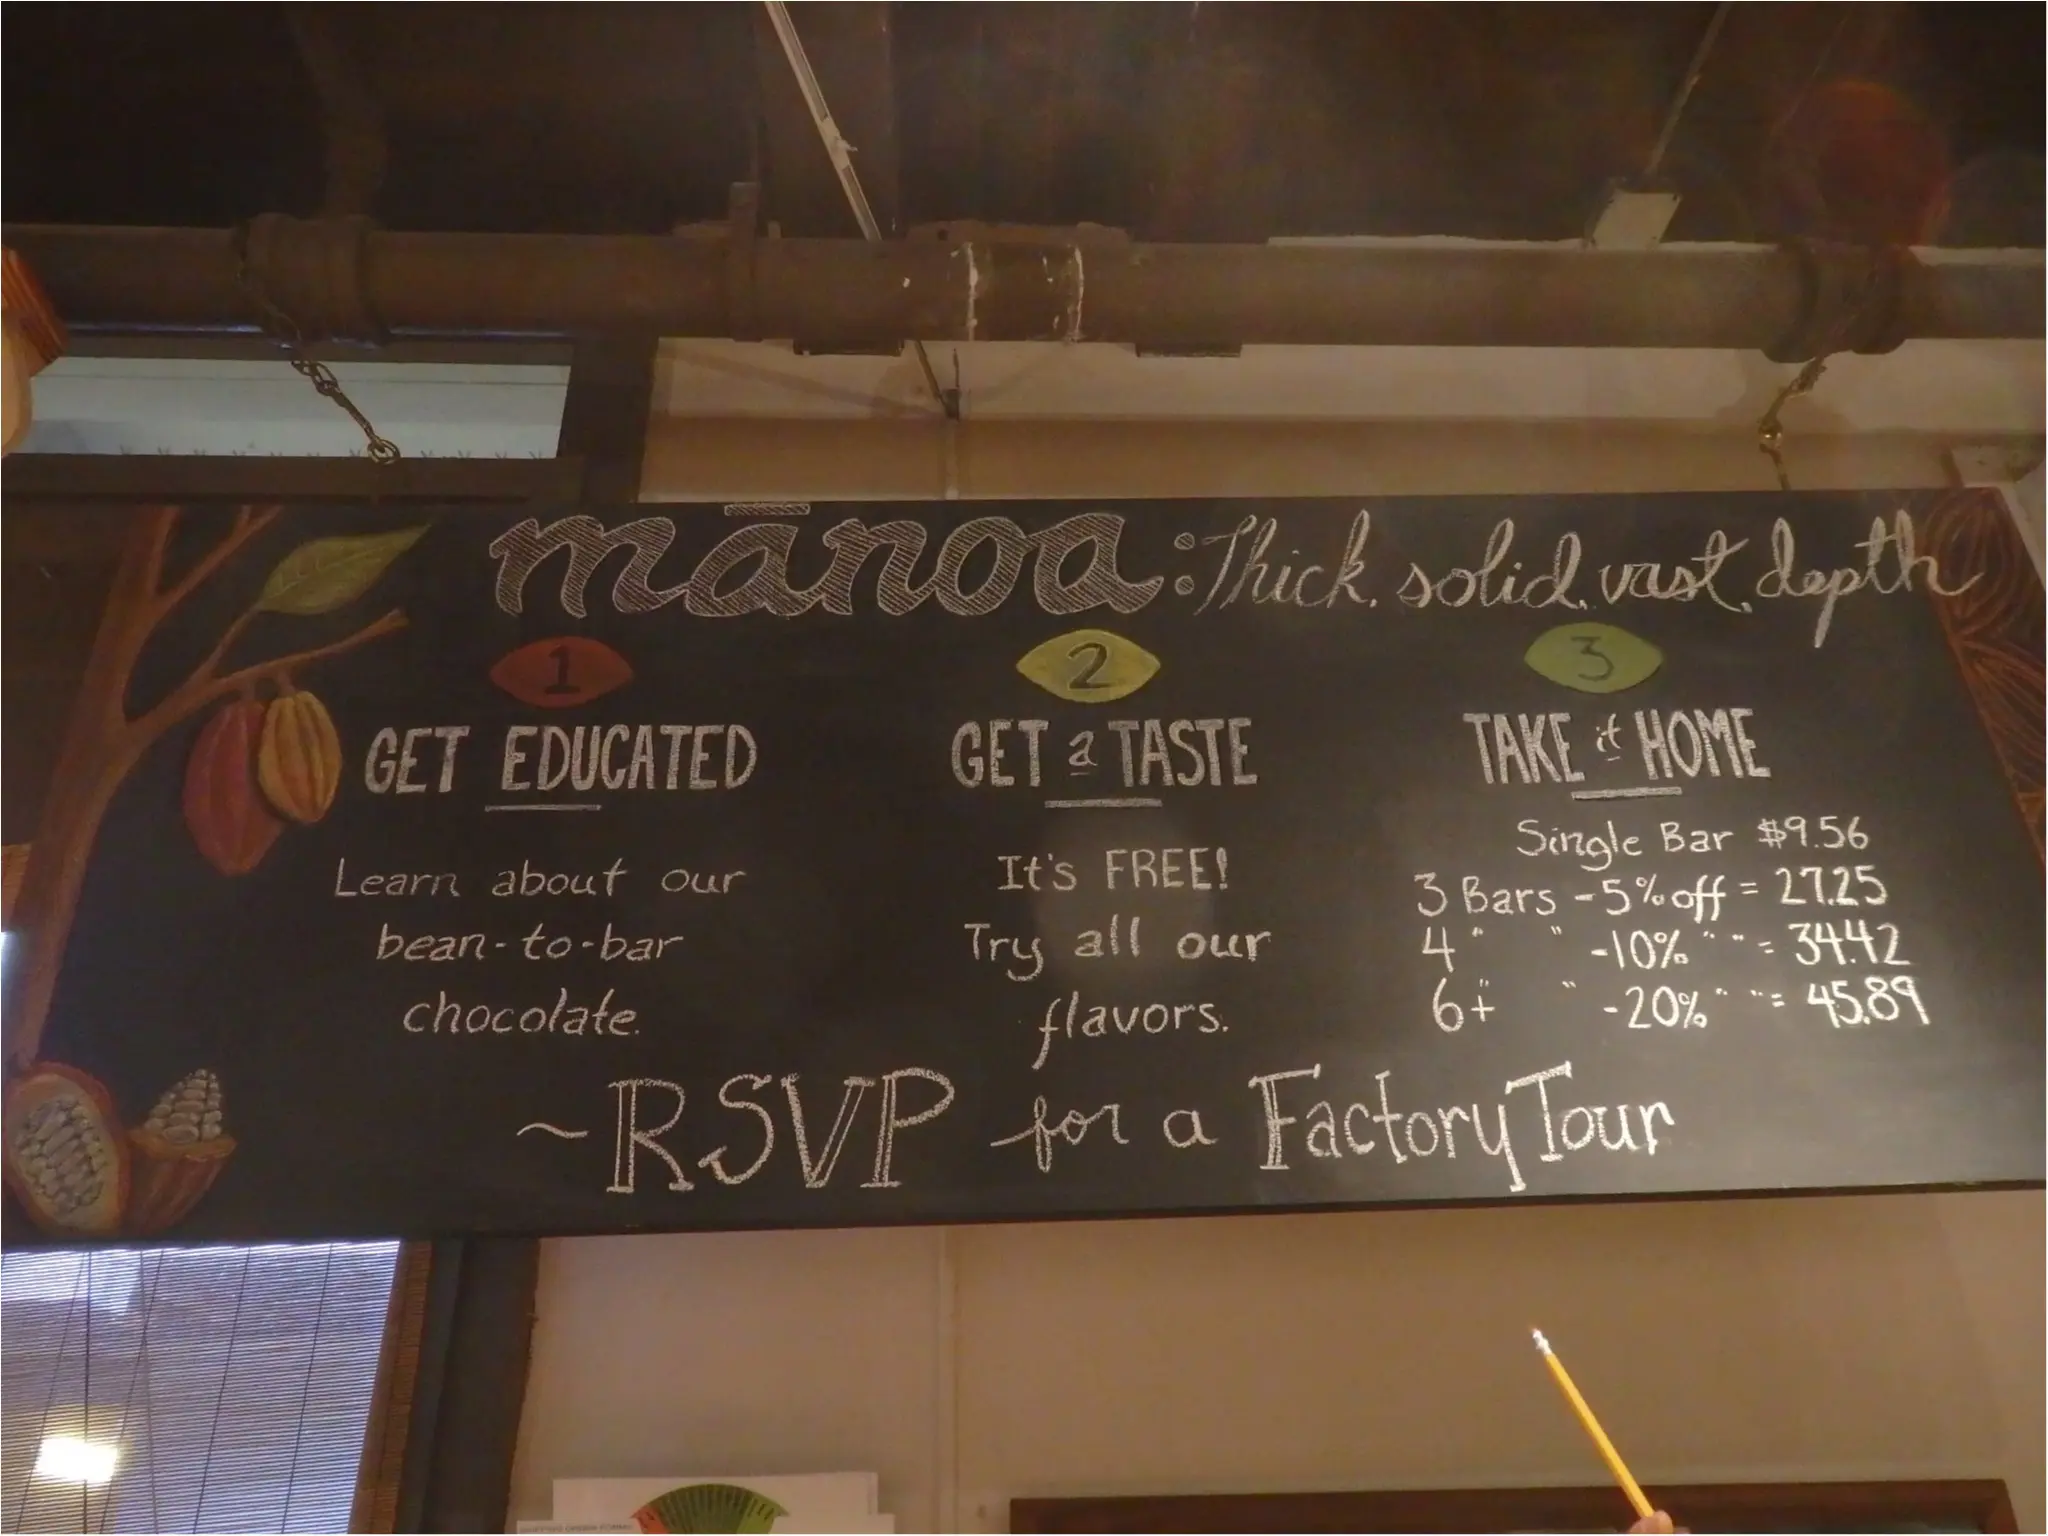 mānoa: Thick, solid, vast, depth
1
GET EDUCATED
Learn about our
bean-to-bar
chocolate.
2
GET a TASTE
It's FREE!
Try all our
flavors.
3
TAKE it HOME
Single Bar $9.56
3 Bars -5% off = 27.25
4 " " -10% " " = 34.42
6+ " " -20% " " = 45.89
~RSVP for a Factory Tour